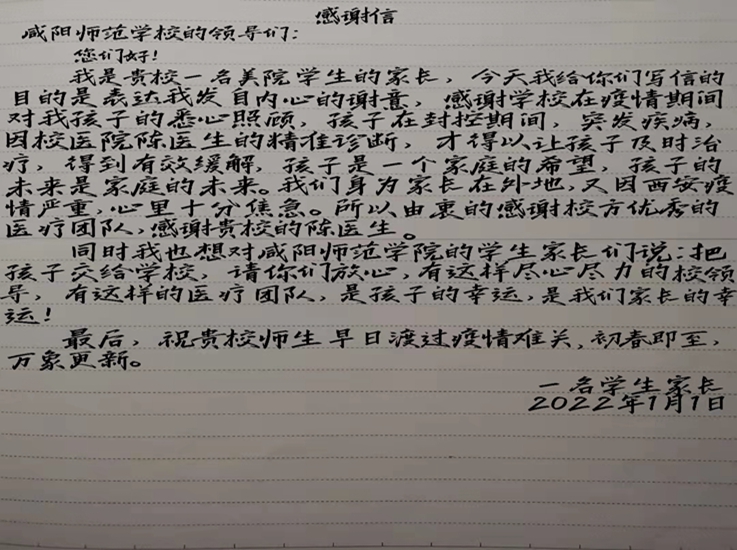 感谢信
咸阳师范学校的领导们:
您们好!
我是贵校一名美院学生的家长，今天我给你们写信的
目的是表达我发自内心的谢意，感谢学校在疫情期间
对我孩子的悉心照顾，孩子在封控期间，突发疾病，
因校医院陈医生的精准诊断，才得以让孩子及时治
疗，得到有效缓解，孩子是一个家庭的希望，孩子的
未来是家庭的未来。我们身为家长在外地，又因西安疫
情严重，心里十分焦急。所以由衷的感谢校方优秀的
医疗团队，感谢贵校的陈医生。
同时我也想对咸阳师范学院的学生家长们说:把
孩子交给学校，请你们放心，有这样尽心尽力的校领
导，有这样的医疗团队，是孩子的幸运，是我们家长的幸
运!
最后，祝贵校师生早日渡过疫情难关，初春即至，
万象更新。
一名学生家长
2022年1月1日